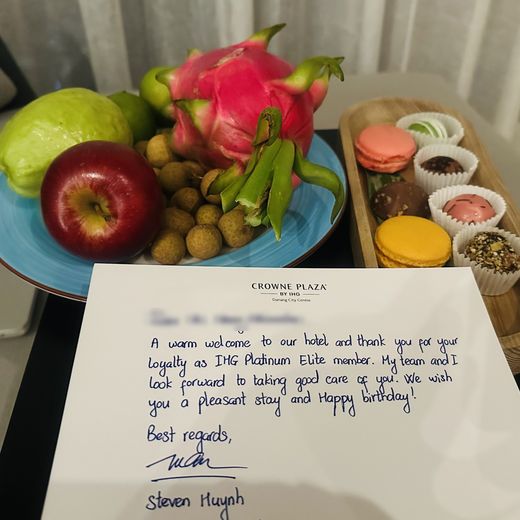 CROWNE PLAZA
BY IHG
Danang City Centre
A warm welcome to our hotel and thank you for your
loyalty as IHG Platinum Elite member. My team and I
look forward to taking good care of you. We wish
you a pleasant stay and Happy birthday!
Best regards,
Steven Huynh